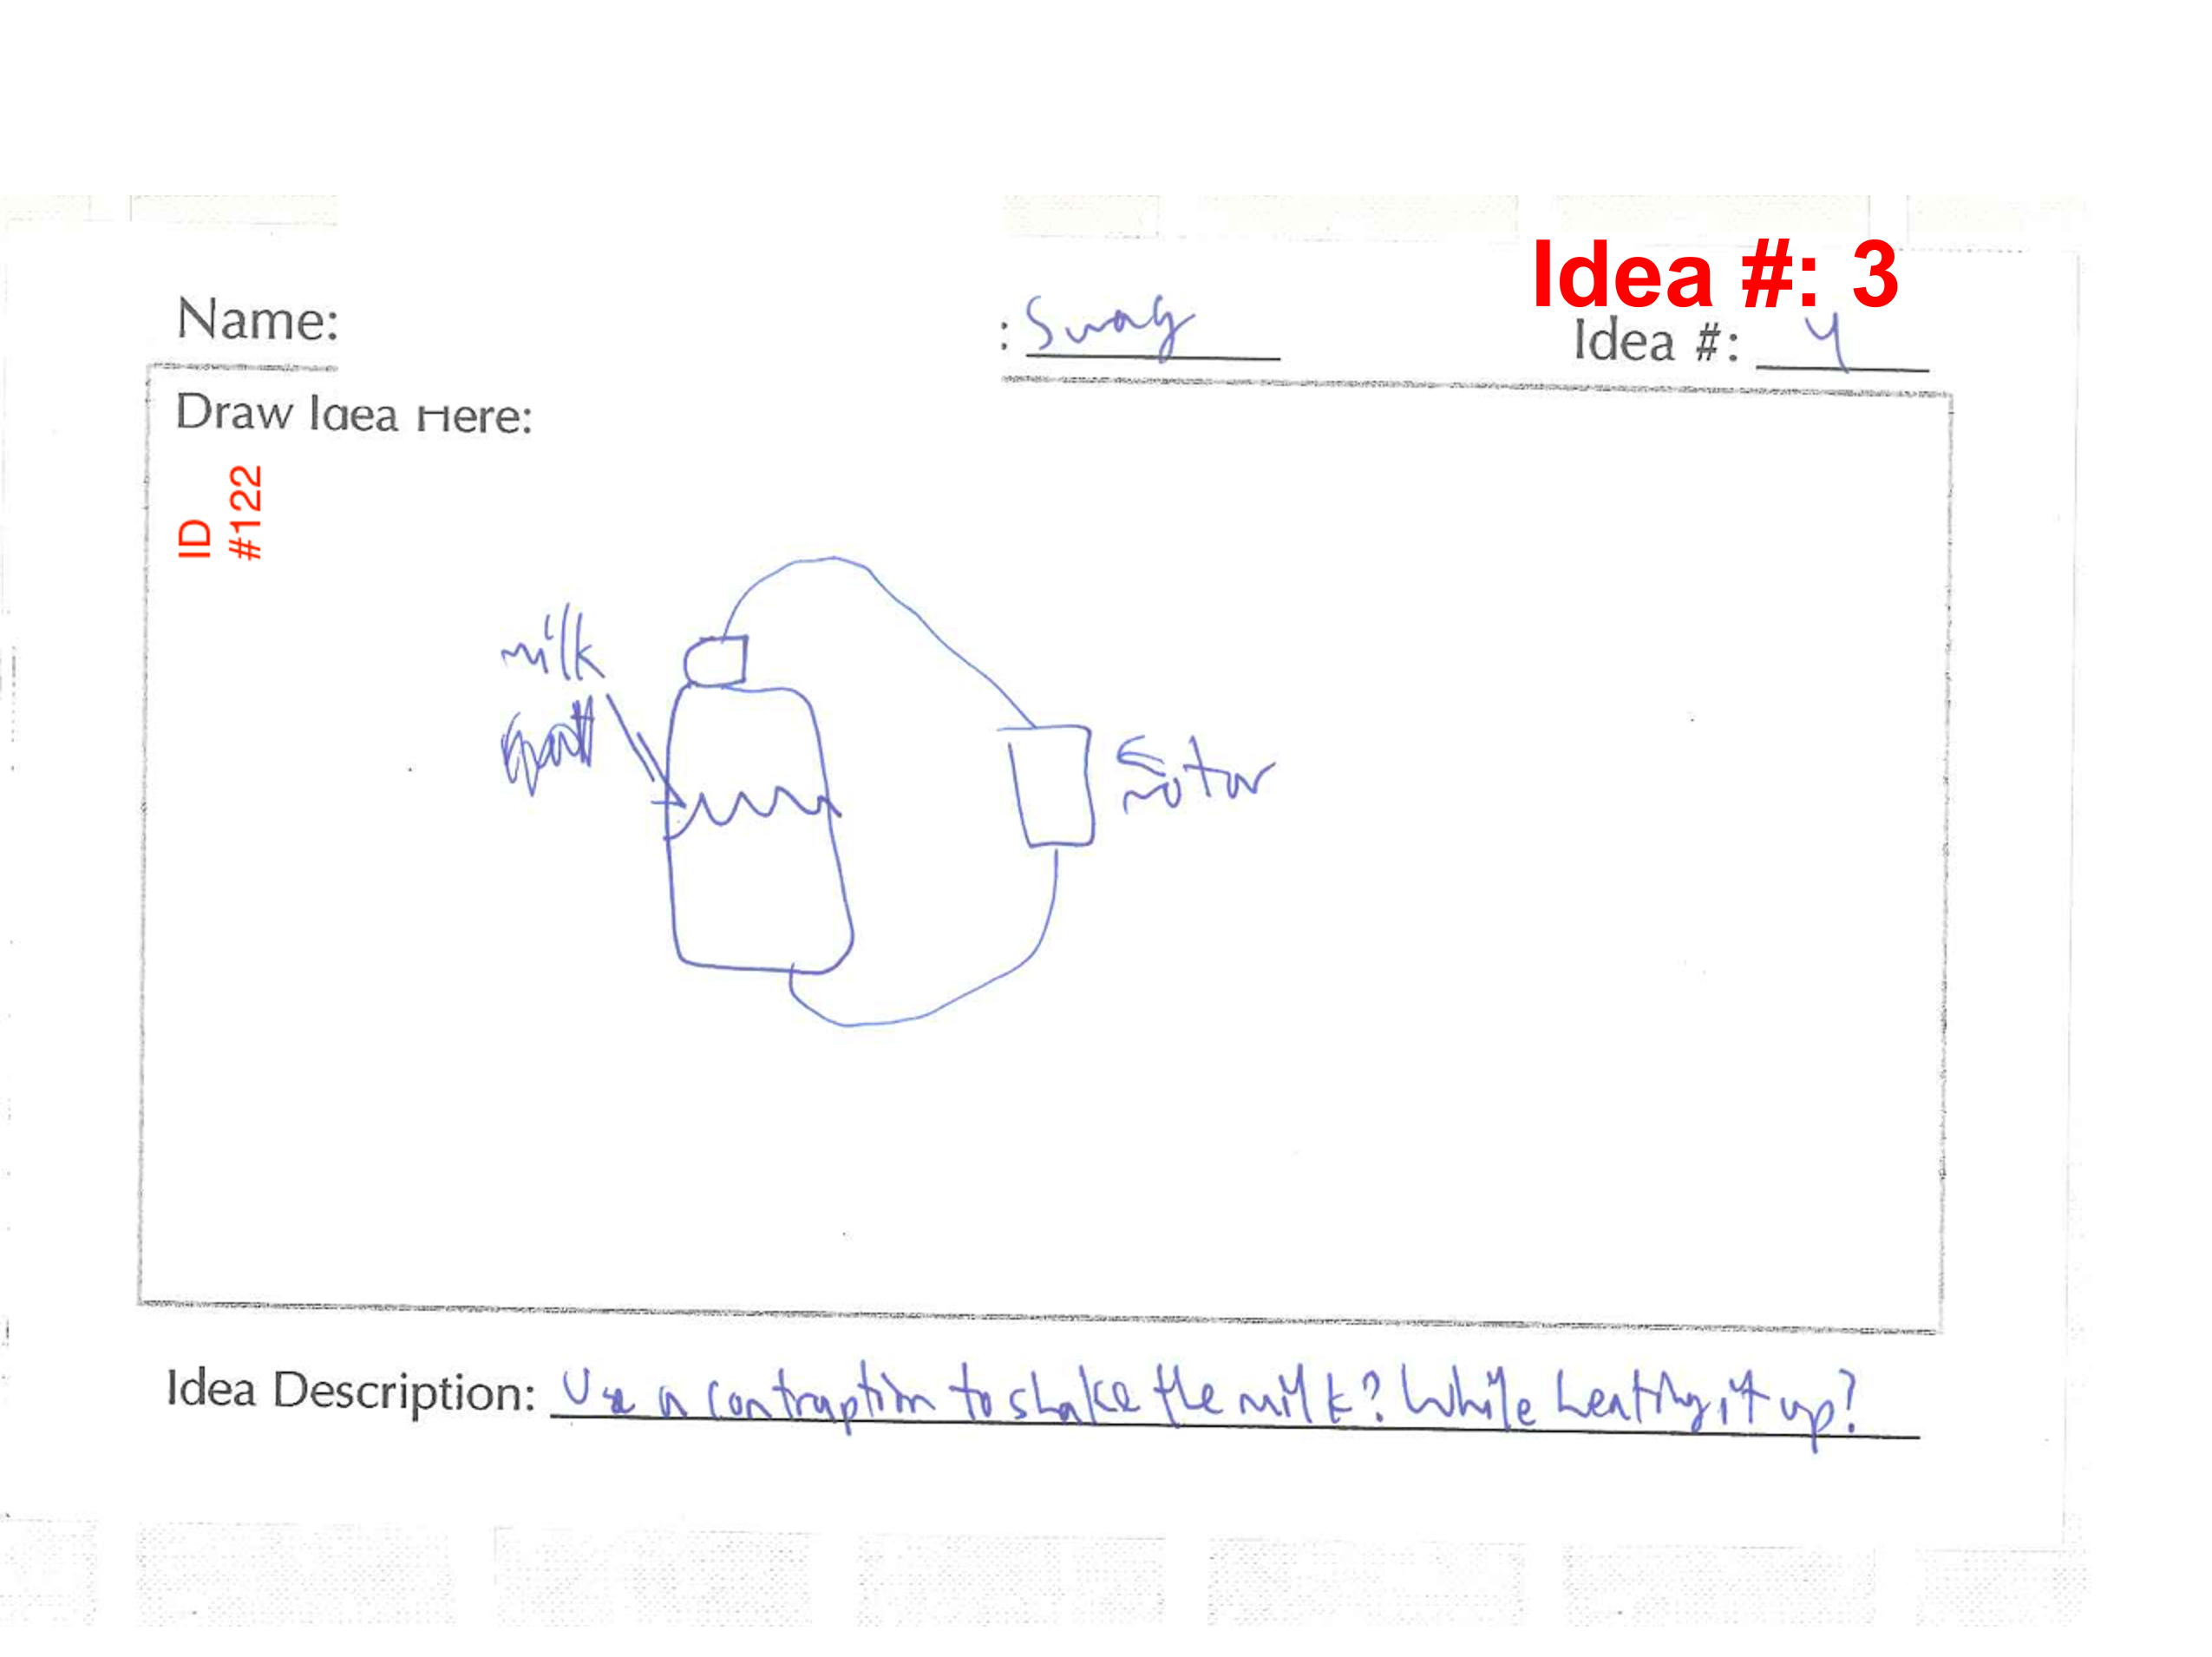 Idea #: 3
Name:
: Swag
Idea #: 4
Draw Idea Here:
ID
#122
milk
motor
Idea Description: Use a contraption to shake the milk? While heating it up?